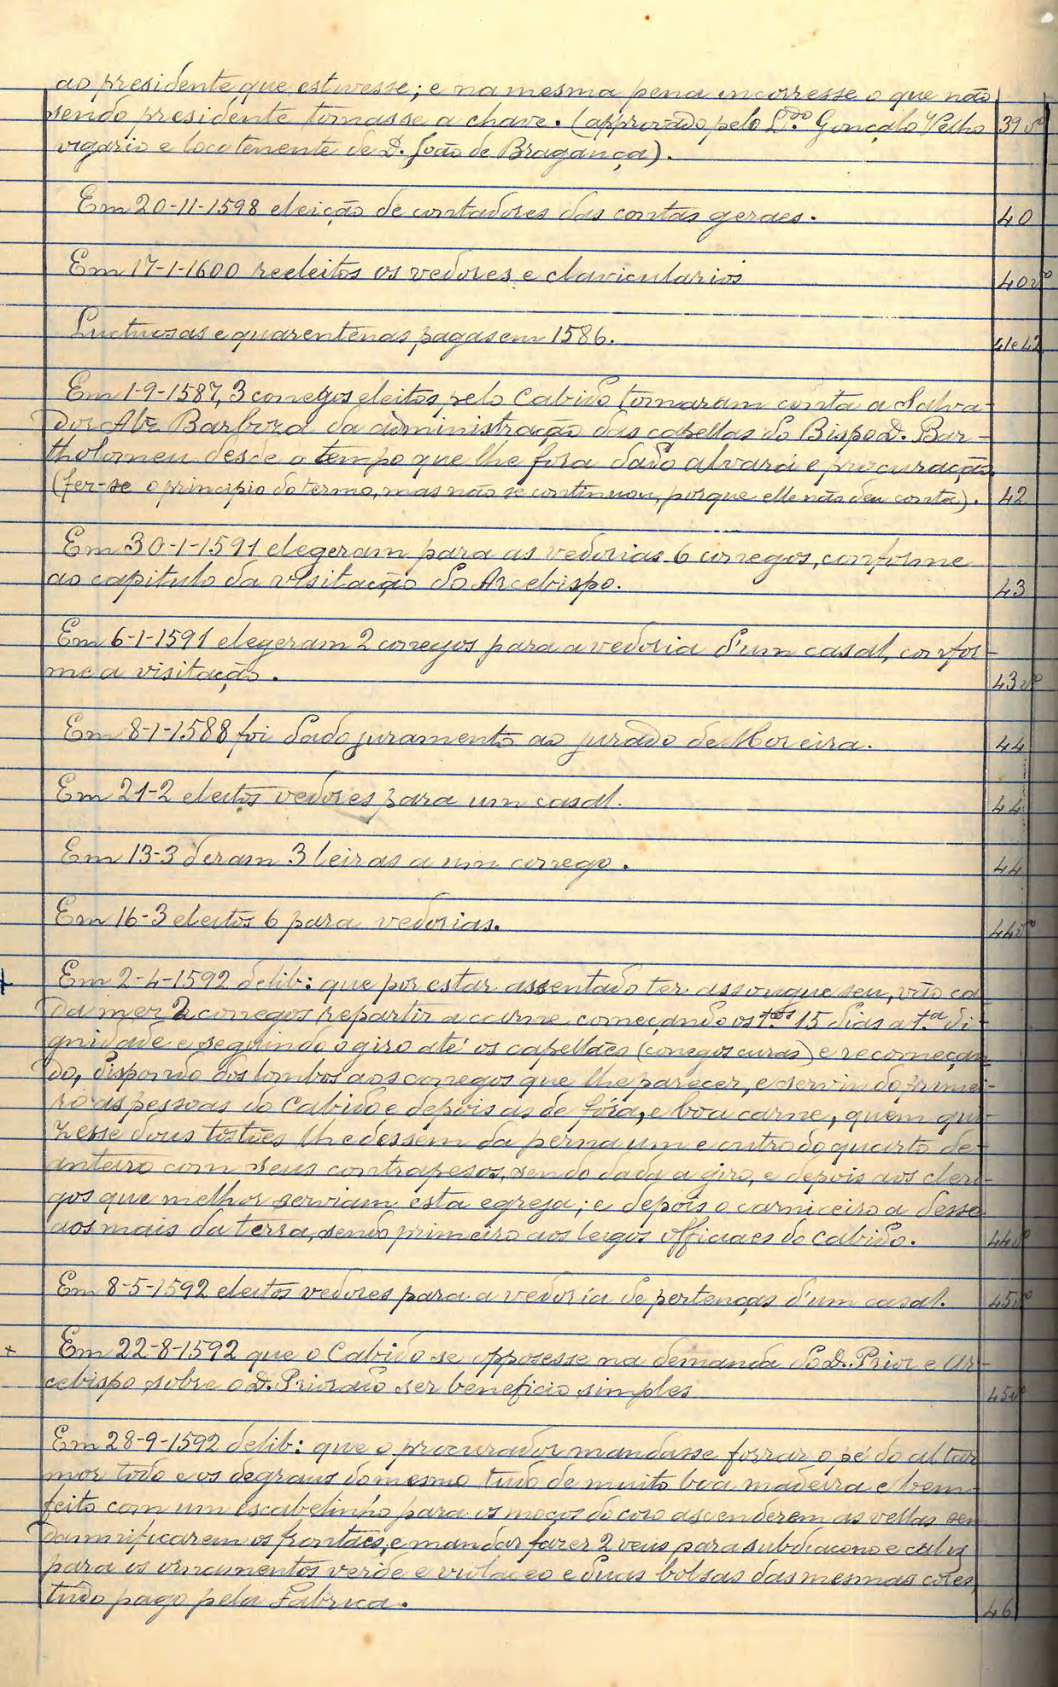 ao presidente que estivesse; e na mesma pena incorresse o que não
sendo presidente tomasse a chave. (approvado pelo L.do Gonçalo 39 vo
vigario e locotenente de D. João de Bragança).
Em 20-11-1598 eleição de contadores das contas geraes. 40
Em 17-1-1600 reeleitos os vedores e clavicularios 40 vo
Luctuosas e quarentenas pagas em 1586. 41 e 42
Em 1-9-1587, 3 conegos eleitos pelo Cabido tomaram conta a Salva-
dor Alz Barboza da administração das capellas do Bispo D. Bar-
tholomeu desde o tempo que lhe fora dado alvará e procuração
(fez-se o principio do termo, mas não se continuou, porque elle não deu conta). 42
Em 30-1-1591 elegeram para as vedorias 6 conegos, conforme
ao capitulo da visitação do Arcebispo. 43
Em 6-1-1591 elegeram 2 conegos para a vedoria d'um casal, confor-
me a visitação. 43 vo
Em 8-1-1588 foi dado juramento ao jurado de Moreira. 44
Em 21-2 eleitos vedores para um casal. 44
Em 13-3 deram 3 leiras a um conego. 44
Em 16-3 eleitos 6 para vedorias. 44 vo
+ Em 2-4-1592 delib: que por estar assentado ter assougue seu, vão ca-
da mez 2 conegos repartir a carne começando os 1.os 15 dias a 1.a di-
gnidade e seguindo o giro até os capellães (conegos curas) e recomeçan-
do, dispondo dos lombos aos conegos que lhe parecer, e servindo primei-
ro as pessoas do Cabido e depois as de fóra, e boa carne, quem qui-
zesse dous tostões lhe dessem da perna um e outro do quarto de-
anteiro com seus contrapesos, sendo dada a giro, e depois aos cleri-
gos que melhor serviam esta egreja; e depois o carniceiro a desse
aos mais da terra, sendo primeiro aos leigos officiaes do Cabido. 44 vo
Em 8-5-1592 eleitos vedores para a vedoria de pertenças d'um casal. 45 vo
+ Em 22-8-1592 que o Cabido se oppozesse na demanda do D. Prior e Ar-
cebispo sobre o D. Priorado ser beneficio simples 45 vo
Em 28-9-1592 delib: que o procurador mandasse forrar o pé do altar
mor todo e os degraus do mesmo tudo de muito boa madeira e bem
feito com um escabelinho para os moços do coro ascenderem as vellas sem
damnificarem os frontaes, e mandar fazer 2 veus para subdiacono e calix
para os ornamentos verde e violaceo e duas bolsas das mesmas cores,
tudo pago pela Fabrica. 46